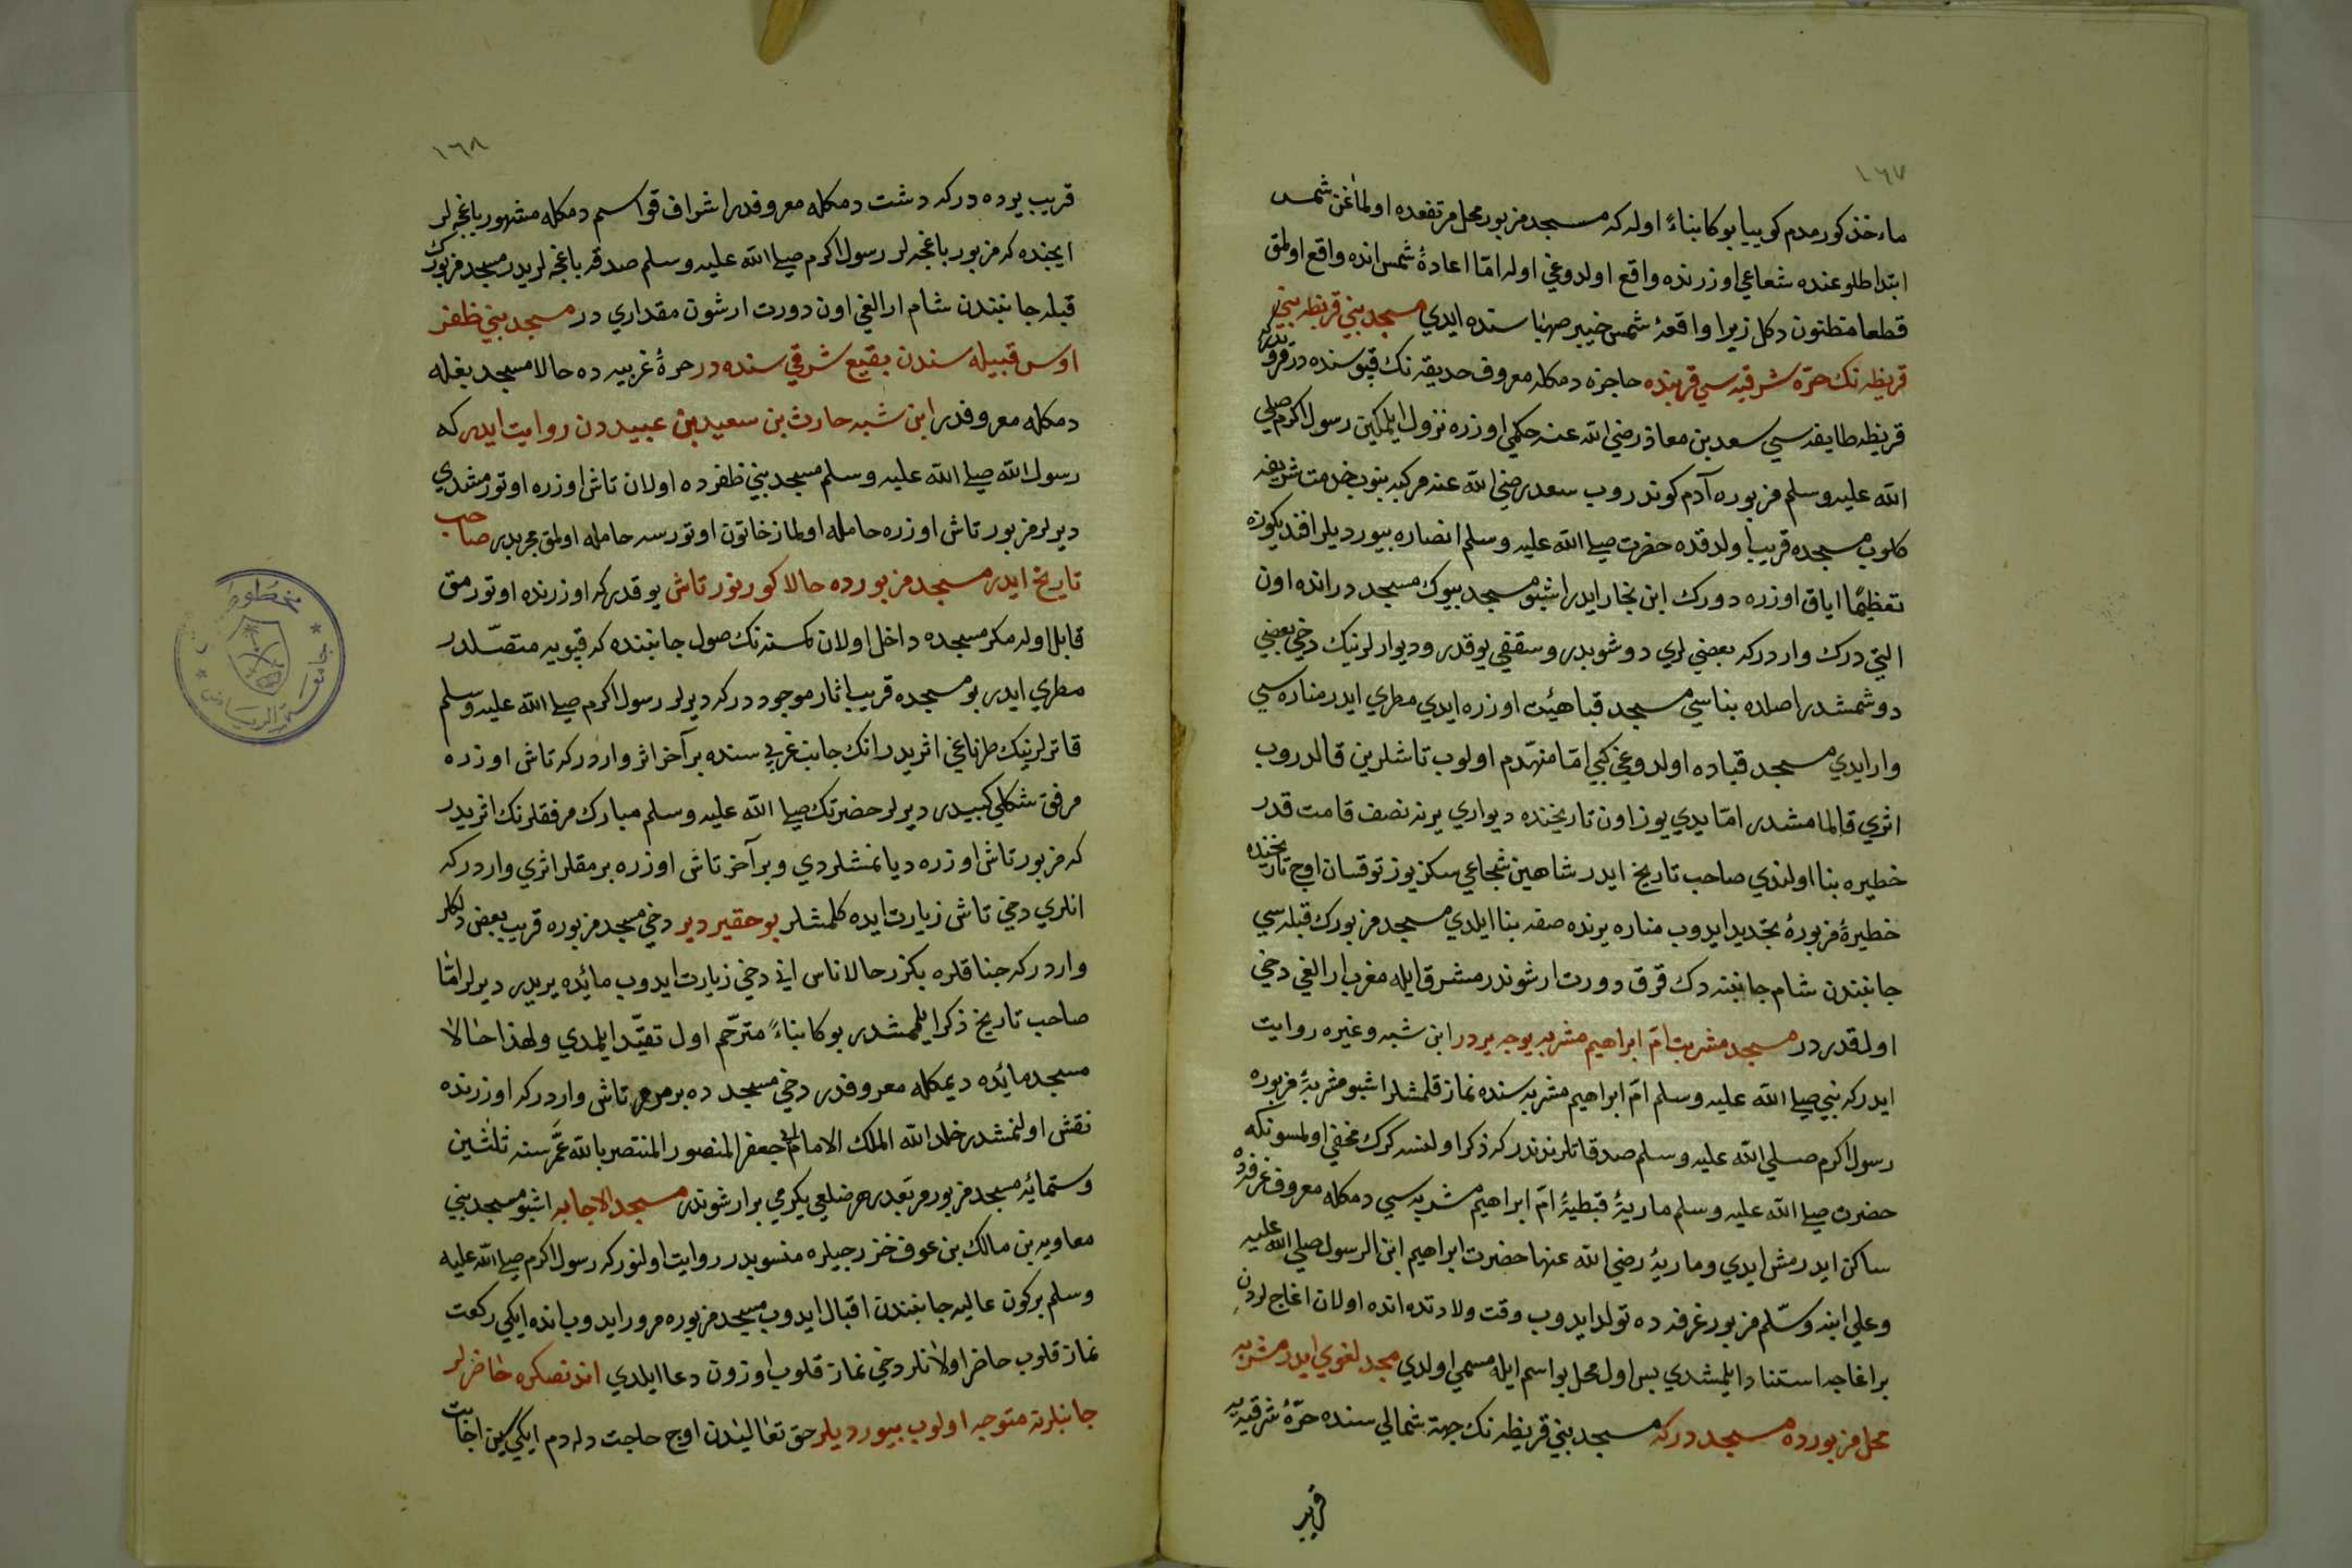 ١٦٧
ماء خذ كورمدم كوييا بوكا بناءً اوله كه مسجد مزبور محل مرتفعده اولماغن شمس
ابتدا طلوعنده شعاعي اوزرنده واقع اولدوغي اوله امّا اعادۀ شمس انده واقع اولمق
قطعا مظنون دكل زيرا واقعۀ شمس خيبر صهباسنده ايدي مسجد بني قريظه بني
قريظه نك حرّه شرقيه سي قربنده حاجزه دمكله معروف حديقه نك قپوسنده در
قريظه طايفه سي سعد بن معاذ رضي الله عنه حكمي اوزره نزول ايلمكين رسول اكرم صلي
الله عليه وسلم مزبوره آدم كوندروب سعد رضي الله عنه مركبه بنوب خدمت شريفه
كلوب مسجده قريب اولدقده حضرت صلے الله عليه وسلم انصاره بيورديلر افنديكوزه
تعظيمًا اياق اوزره دورك ابن نجار ايدر اشبو مسجد بيوك مسجد در انده اون
التي درك واردركه بعضي لري دوشوبدر وسقفي يوقدر وديوارلرنيك دخي بعضي
دوشمشدر اصلده بناسي مسجد قبا هيئت اوزره ايدي مطري ايدر مناره سي
وار ايدي مسجد قباده اولدوغي كبي امّا منهّدم اولوب تاشلرين قالدروب
اثري قالمامشدر امّا يدي يوز اون تاريخنده ديواري يرنه نصف قامت قدر
خطيره بنا اولندي صاحب تاريخ ايدر شاهين شجاعي سكز يوز توقسان اوچ تاريخنده
خطيرۀ مزبورۀ تجديد ايدوب مناره يرنده صفه بنا ايلدي مسجد مزبورك قبله سي
جانبندن شام جانبنه دك قرق دورت ارشوندر مشرق ايله مغرب ارالغي دخي
اولقدر در مسجد مشربت امّ ابراهيم مشربه يوجه يردر ابن شبه وغيره روايت
ايدركه نبي صلے الله عليه وسلم امّ ابراهيم مشربه سنده نماز قلمشلر اشبو مشربۀ مزبوره
رسول اكرم صلي الله عليه وسلم صدقاتلرندندركه ذكر اولنسه كرك مخفي اولمسونكه
حضرت صلے الله عليه وسلم ماريۀ قبطيۀ امّ ابراهيم مشربه سي دمكله معروف غرفه ده
ساكن ايدرمش ايدي وماريۀ رضي الله عنها حضرت ابراهيم ابن الرسول صلي الله عليه
وعلي ابنه وسلّم مزبور غرفه ده تولد ايدوب وقت ولادتده انده اولان اغاجلردن
بر اغاجه استناد ايلمشدي پس اول محل بو اسم ايله مسمي اولدي مجد لغوي ايدر مشربه
محل مزبورده مسجد دركه مسجد بني قريظه نك جهت شمالي سنده حرّۀ شرقيه يه
قريب
١٦٨
قريب يرده دركه دشت دمكله معروفدر اشراف قواسم دمكله مشهور باغچه لر
ايچنده كه مزبور باغچه لر رسول اكرم صلے الله عليه وسلم صدقه باغچه لريدر مسجد مزبورك
قبله جانبندن شام ارالغي اون دورت ارشون مقداري در مسجد بني ظفر
اوس قبيله سندن بقيع شرقي سنده در حرۀ غربيه ده حالا مسجد بغله
دمكله معروفدر ابن شبه حارث بن سعيد بن عبيددن روايت ايدر كه
رسول الله صلے الله عليه وسلم مسجد بني ظفرده اولان تاش اوزره اوتورمشدي
ديرلر مزبور تاش اوزره حامله اولماز خاتون اوتورسه حامله اولمق مجربدر صاحب
تاريخ ايدر مسجد مزبورده حالا كورنور تاش يوقدركه اوزرنده اوتورمق
قابل اوله مكر مسجده داخل اولان كمسنه نك صول جانبنده كه قپويه متصّلدر
مطري ايدر بو مسجده قريب اثار موجود دركه ديرلر رسول اكرم صلے الله عليه وسلم
قاترلرنيك طرناغي اثريدر انك جانب غربي سنده بر آخر اثر واردركه تاش اوزره
مرفق شكلي كبيدر ديرلر حضرتك صلے الله عليه وسلم مبارك مرفقلرنك اثريدر
كه مزبور تاش اوزره ديانمشلردي وبر آخر تاش اوزره برمقلر اثري واردركه
انلري دخي تاش زيارت ايده كلمشلر بو حقير دير دخي مسجد مزبوره قريب بعض دلكلر
واردركه جناقلره بكزر حالا ناس اني دخي زيارت ايدوب مائده يريدر ديرلر امّا
صاحب تاريخ ذكر ايلممشدر بوكا بناءً مترّجم اول تقيّد ايلمدي ولهذا حالا
مسجد مائده ديمكله معروفدر دخي مسجد ده بر مرمر تاش واردركه اوزرنده
نقش اولنمشدر خلد الله الملك الامام ابي جعفر المنصور المنتصر بالله عمّر سنه ثلثين
وستمائه مسجد مزبور مربعدر هر ضلعي يكرمي بر ارشوندر مسجد الاجابه اشبو مسجد بني
معاويه بن مالك بن عوف خزرجيلره منسوبدر روايت اولنوركه رسول اكرم صلے الله عليه
وسلم بركون عاليه جانبندن اقبال ايدوب مسجد مزبوره مرور ايدوب انده ايكي ركعت
نماز قلوب حاضر اولانلر دخي نماز قلوب اوزون دعا ايلدي اندنصكره حاضرلر
جانبلرنه متوجه اولوب بيورديلر حق تعاليندن اوچ حاجت دلهدم ايكي سين اجابت